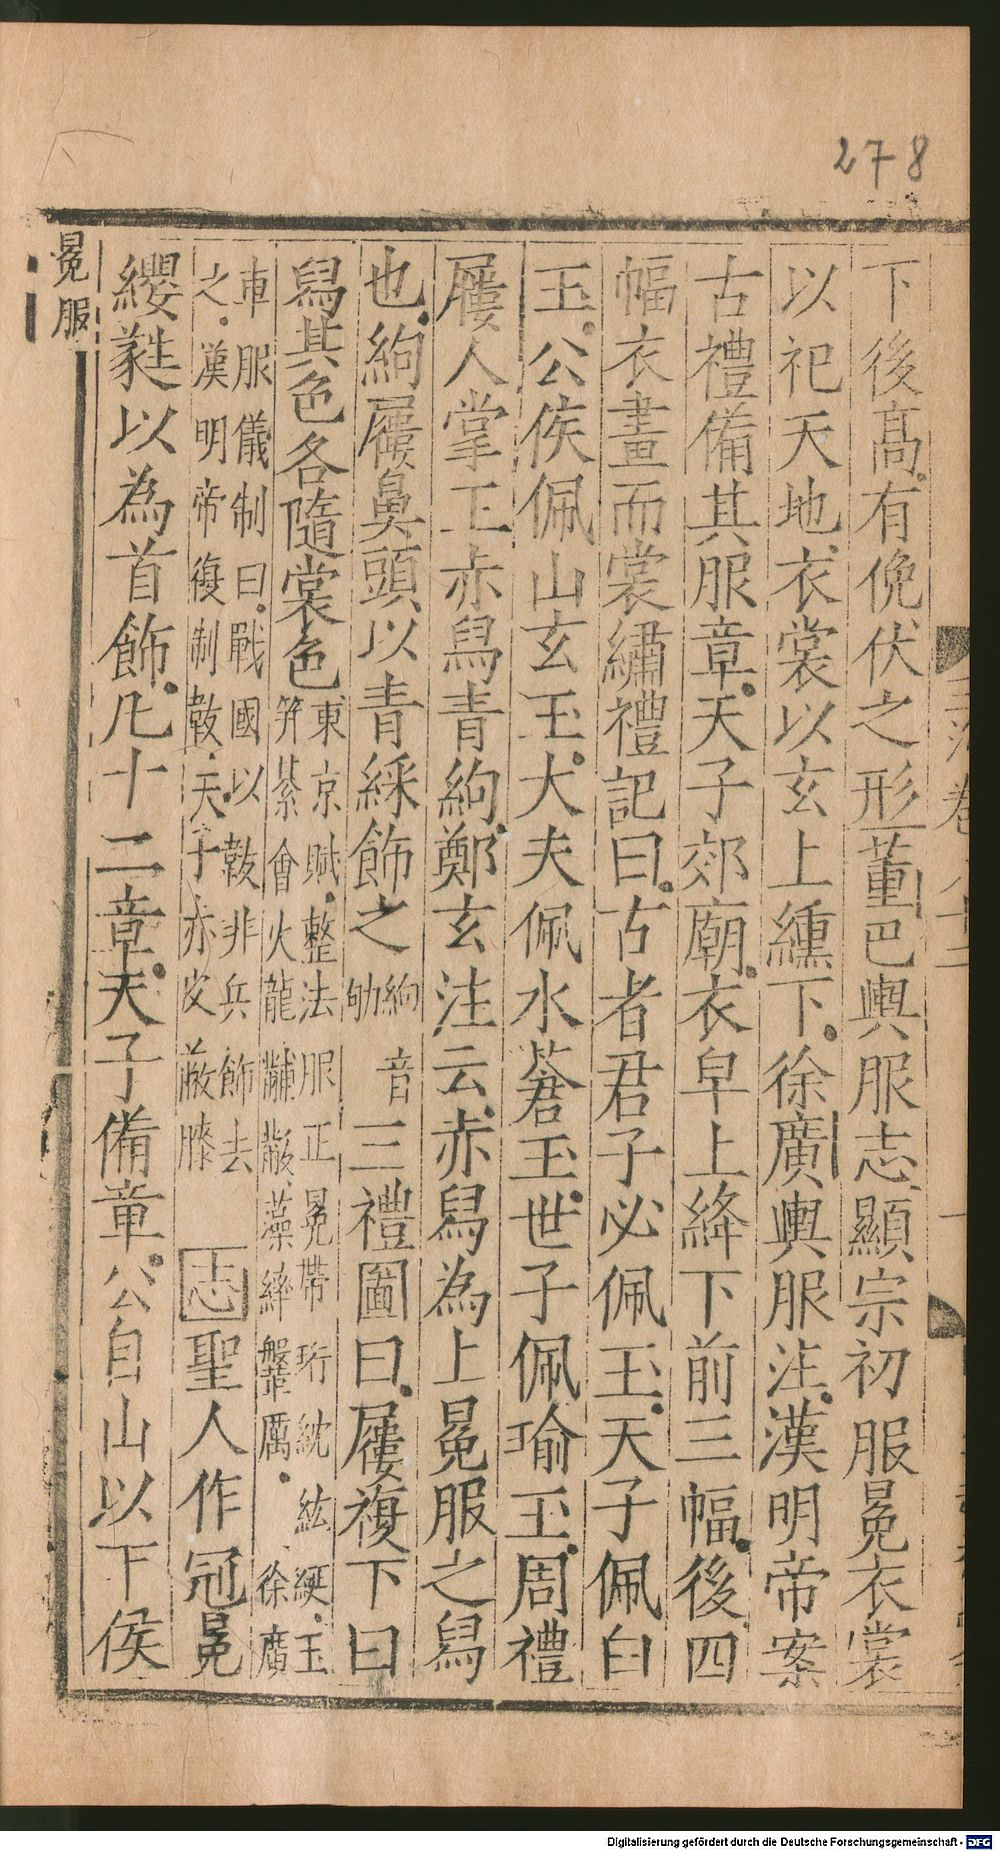 278
下後高有俛伏之形董巴輿服志顯宗初服冕衣裳
以祀天地衣裳以玄上纁下徐廣輿服注漢明帝案
古禮備其服章天子郊廟衣皁上絳下前三幅後四
幅衣畫而裳繡禮記曰古者君子必佩玉天子佩白
玉公侯佩山玄玉大夫佩水蒼玉世子佩瑜玉周禮
屨人掌王赤舄青絇鄭玄注云赤舄為上冕服之舄
也絇屨鼻頭以青綵飾之絇音劬三禮圖曰屨複下曰
舄其色各隨裳色東京賦整法服正冕帶珩紞紘綖玉
笄綦會火龍黼黻藻繂鞶厲徐廣
車服儀制曰戰國以韍非兵飾去
之漢明帝復制韍天子赤皮蔽膝志聖人作冠冕
纓蕤以為首飾凡十二章天子備章公自山以下侯
冕服
Digitalisierung gefördert durch die Deutsche Forschungsgemeinschaft - DFG